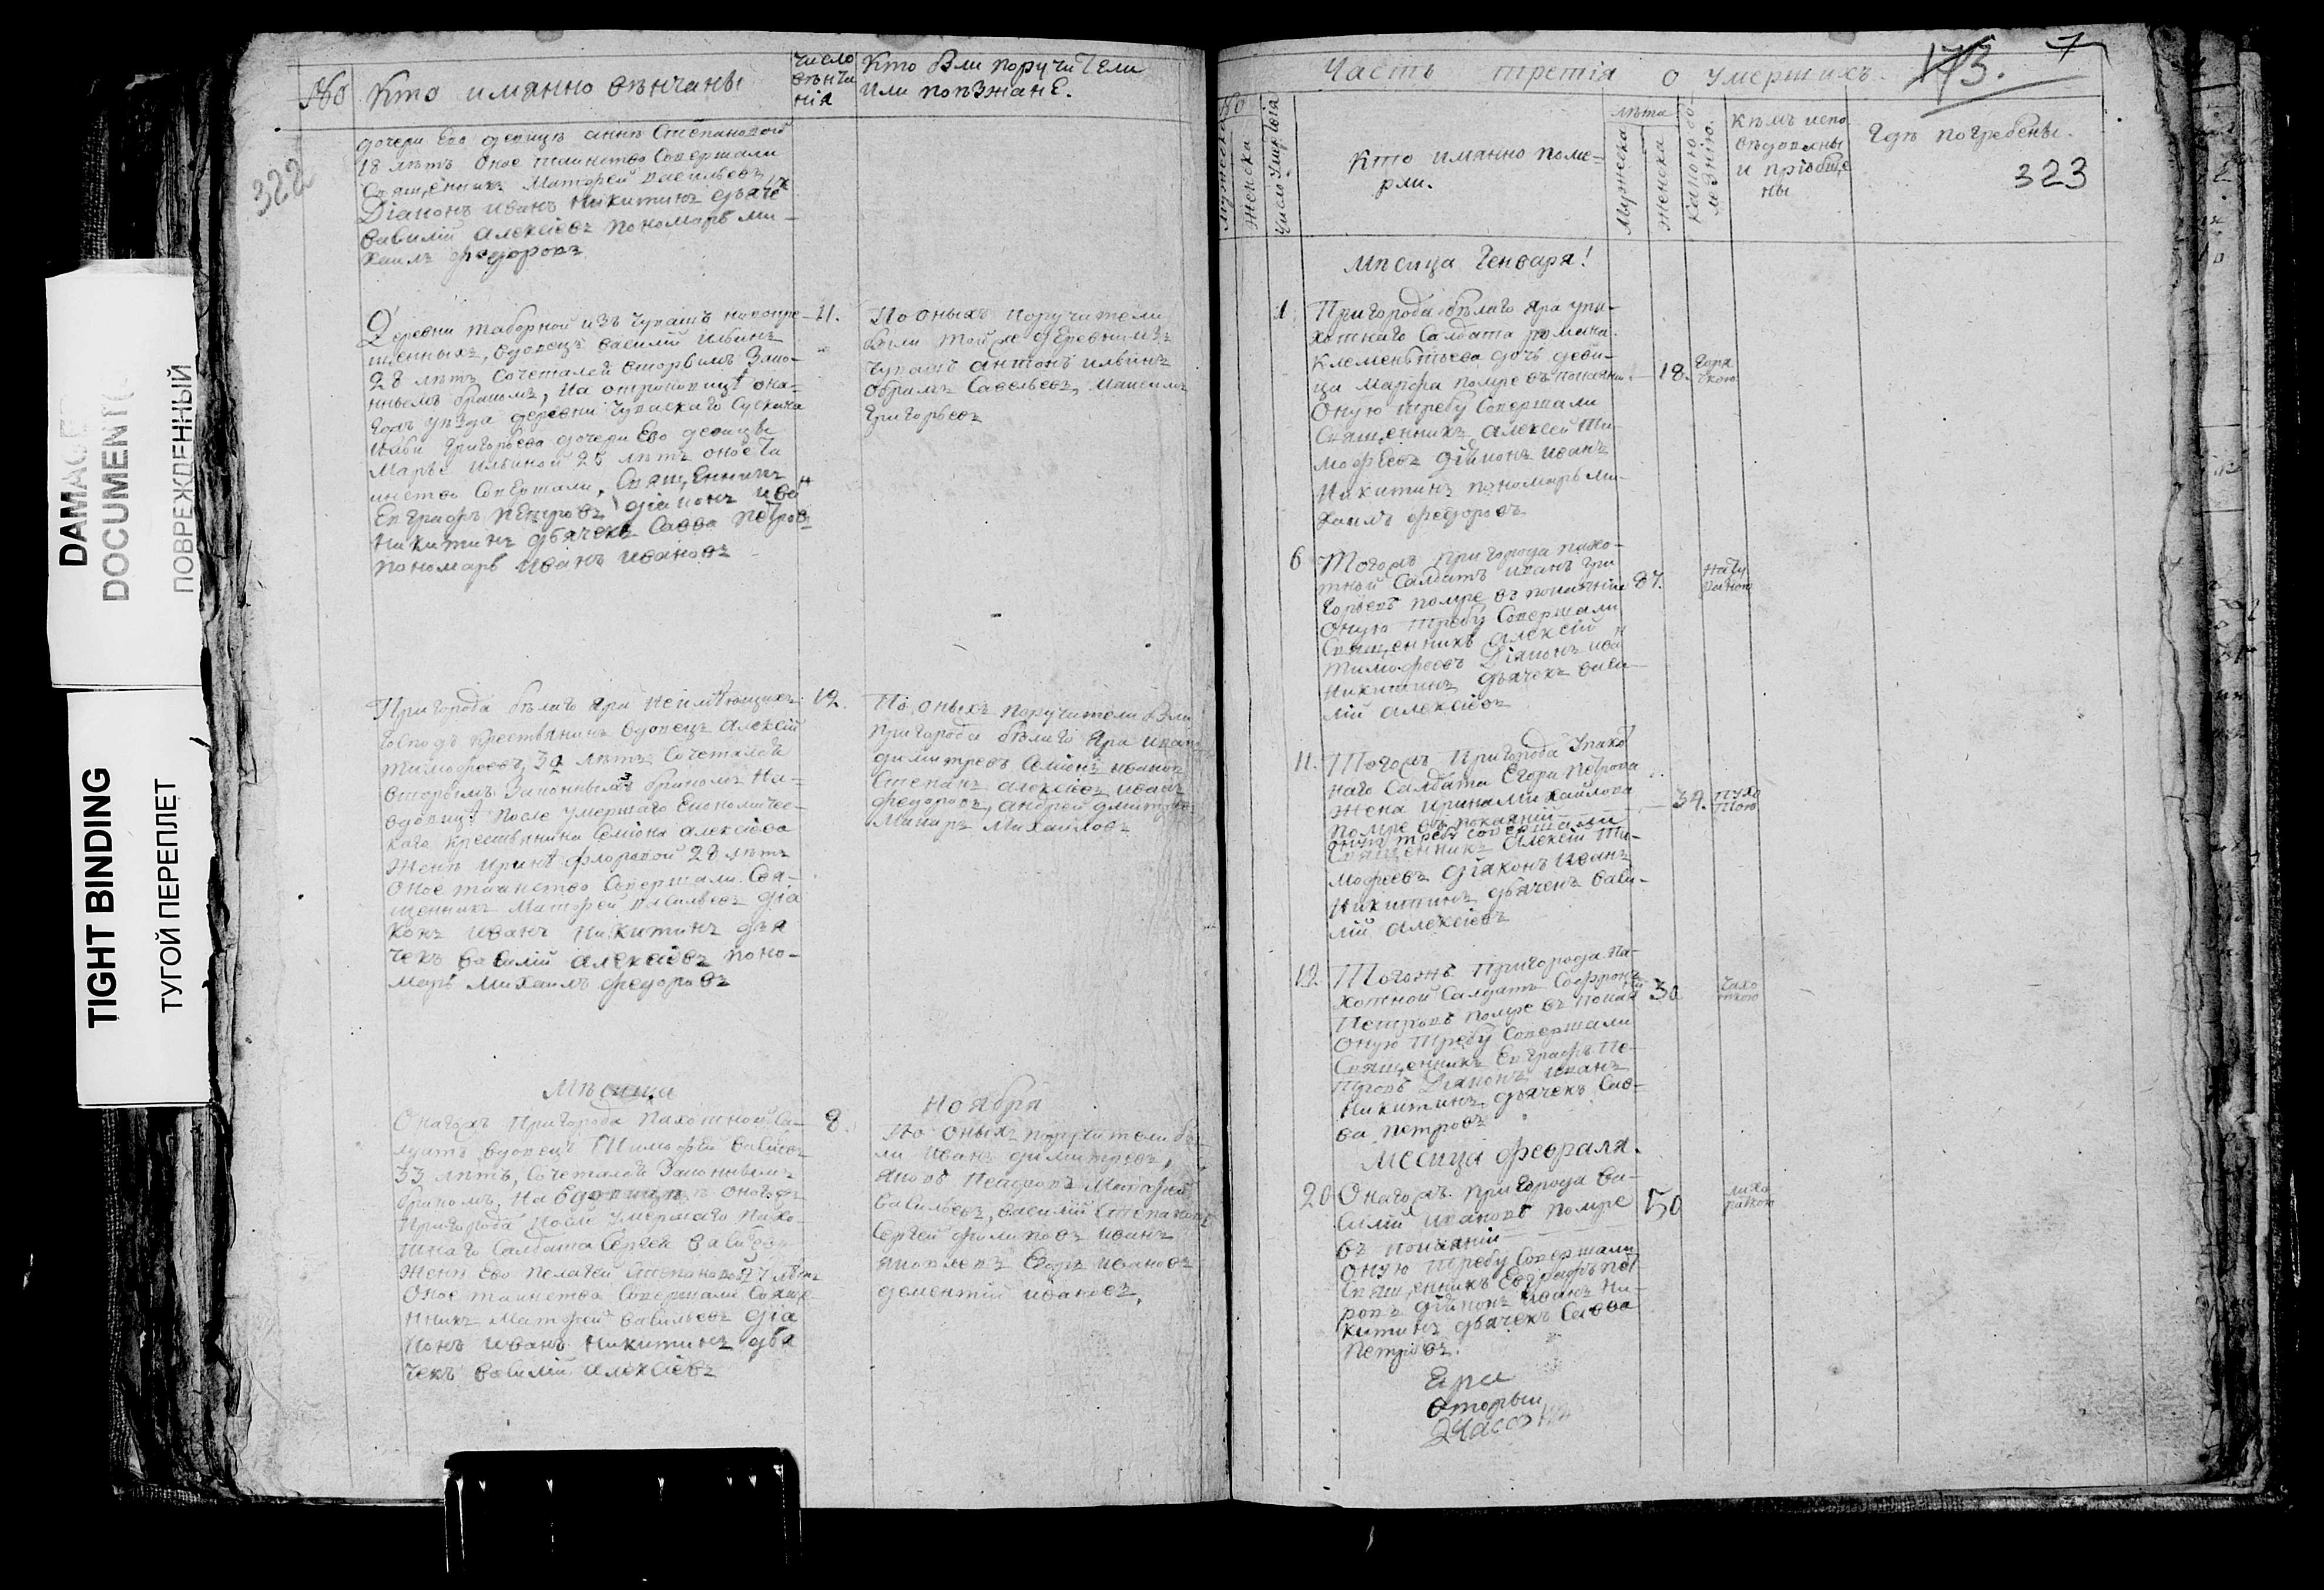 DAMAGE
DOCUMENT
ПОВРЕЖДЕННЫЙ
TIGHT BINDING
ТУГОЙ ПЕРЕПЛЕТ
322
№ Кто имянно вѣнчаны
число вѣнча нiя
Кто бли поручители
или поѣзжанЕ.
дочери Его девицѣ аннѣ Степановой
18 лѣтъ Оное таинство Совершали
Священникъ Матфей васильевъ
Дiаконъ иванъ Никитинъ дьячекъ
василiй алексiевъ пономарь ми-
хаилъ федоровъ
Деревни таборной изъ Чувашъ новокре-
щенныхъ, вдовецъ василiй ильинъ
28 лѣтъ Сочетался вторымъ Зако-
ннымъ бракомъ,
уѣзда деревни Чувашскаго Сускана
Григорьева дочери Его девицы
Марьѣ ильиной 25 лѣтъ оное Та
инство Совершали, Священникъ
Евграфъ Петровъ дiаконъ иванъ
Никитинъ дьячекъ Савва петровъ
пономарь иванъ ивановъ
11.
По оныхъ поручители
были той же деревни изъ
чувашъ антонъ ильинъ
Савельевъ, максимъ
Григорьевъ
Пригорода бѣлаго яра неимѣющихъ
Господъ крестьянинъ вдовецъ алексiй
тимофеевъ 30 лѣтъ Сочетался
вторымъ Законнымъ бракомъ На
вдовицѣ после умершаго Економиче-
каго крестьянина Семiона алексiева
Женѣ иринѣ флоровой 28 лѣтъ
Оное таинство Совершали Свя-
щенникъ Матфей васильевъ дiа
конъ иванъ Никитинъ дья
чекъ василiй алексiевъ поно-
марь михаилъ федоровъ
12.
По оныхъ поручители бли
пригорода бѣлаго яра иванъ
димитревъ Семiонъ ивановъ
Степанъ алексiевъ иванъ
федоровъ, андрей дмитрев
Макаръ Михайловъ
Мѣсяца
Ноября
Онагожъ Пригорода пахотной Са-
лдатъ вдовецъ Тимофей
33 лѣтъ, Сочетался Законнымъ
бракомъ, На вдовицѣ оногожъ
Пригорода после умершаго пахо-
тнаго Салдата Сергея
Жени Его пелагеи Степановой 27 лѣтъ
Оное таинство Совершали Свяще
нникъ Матфей васильевъ дiа
конъ иванъ Никитинъ дья
чекъ василiй алексiевъ
8.
По оныхъ поручители бы-
ли иванъ димитревъ,
яковъ Петровъ Матфей
васильевъ, василiй Степановъ
Сергей филиповъ иванъ
яковлевъ Егоръ ивановъ
дементiй ивановъ.
Часть третiя о умершихъ.
173. 7
323
№
мужеска
Женска
Число Умертвiя
Кто имянно поме-
рли.
лѣта
Мужеска
Женска
какою бо-
лезнiю.
кѣмъ испо
вѣдованы
и прiобще
ны
Гдѣ погребены.
Мѣсяца Генваря!
1 Пригорода бѣлаго яра упа-
хотнаго Салдата романа
Клементьева дочь деви-
ца Марфа помре въ покаянiи 18. горя чкою
Оную требу Совершали
Священникъ алексей ти
мофеевъ дiаконъ иванъ
Никитинъ пономарь ми-
хаилъ федоровъ
6 Тогожъ пригорода пахо-
тной Салдатъ иванъ Гри
горьевъ помре въ покаянiи 87.
Оную требу Совершали
Священникъ алексiй
тимофеевъ Дiаконъ иванъ
Никитинъ дьячекъ васи-
лiй алексiевъ
11. Тогожъ Пригорода Упахо
тнаго Салдата Егора петрова
Жена ирина михайлова 34.
помре въ покаянiи
оную требу совершали
Священникъ Алексiй Ти-
мофеевъ дiаконъ иванъ
Никитинъ дьячекъ васи-
лiй алексiевъ
12. Тогожъ Пригорода Па-
хотной Салдатъ Софронъ
Петровъ помре въ покая 30 чахо ткою
Оную требу Совершали
Священникъ Евграфъ Пе-
тровъ Дiаконъ иванъ
Никитинъ дьячекъ Сав-
ва петровъ
Месяца февраля.
20 Онагожъ пригорода ва-
силiй ивановъ помре 50 лихо радкою
въ покаянiи
Оную требу Совершали
Священникъ Евграфъ пет
ровъ дiаконъ иванъ Ни-
китинъ дьячекъ Савва
Петровъ.